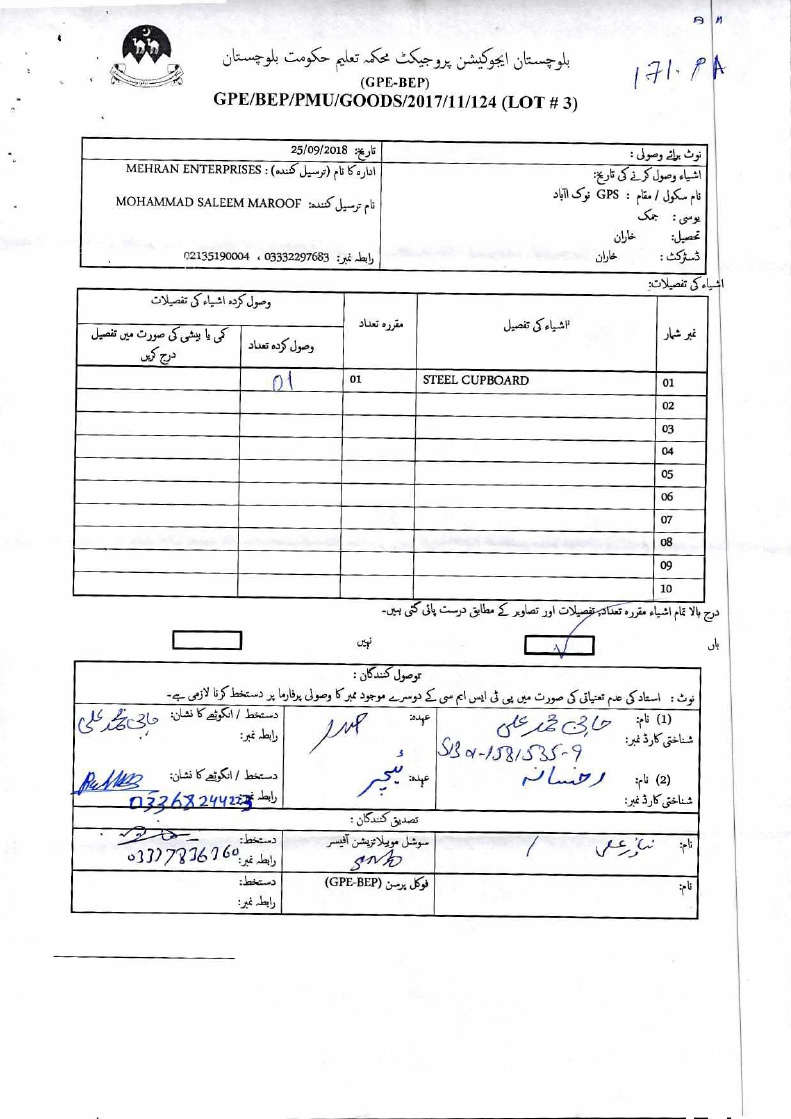 171. PA
بلوچستان ایجوکیشن پروجیکٹ محکمہ تعلیم حکومت بلوچستان
(GPE-BEP)
GPE/BEP/PMU/GOODS/2017/11/124 (LOT # 3)
نوٹ برائے وصولی :
تاریخ: 25/09/2018
اشیاء وصول کرنے کی تاریخ:
ادارہ کا نام (ترسیل کنندہ) : MEHRAN ENTERPRISES
نام سکول / مقام : GPS نوک آباد
نام ترسیل کنندہ: MOHAMMAD SALEEM MAROOF
یوسی : جمک
تحصیل: خاران
ڈسٹرکٹ : خاران
رابطہ نمبر: 03332297683 ، 02135190004
اشیاء کی تفصیلات:
نمبر شمار
اشیاء کی تفصیل
مقررہ تعداد
وصول کردہ اشیاء کی تفصیلات
وصول کردہ تعداد
کمی یا بیشی کی صورت میں تفصیل
درج کریں
01 STEEL CUPBOARD 01 01
02
03
04
05
06
07
08
09
10
درج بالا تمام اشیاء مقررہ تعداد، تفصیلات اور تصاویر کے مطابق درست پائی گئی ہیں۔
ہاں
نہیں
وصول کنندگان :
نوٹ : استاد کی عدم تعیناتی کی صورت میں پی ٹی ایس ایم سی کے دوسرے موجود ممبر کا وصولی پرفارما پر دستخط کرنا لازمی ہے۔
(1) نام: حاجی محمد علی
عہدہ: صدر
دستخط / انگوٹھے کا نشان: حاجی محمد علی
شناختی کارڈ نمبر:
رابطہ نمبر:
(2) نام: رخسانہ
عہدہ: ٹیچر
دستخط / انگوٹھے کا نشان:
شناختی کارڈ نمبر:
رابطہ نمبر: 03368244223
تصدیق کنندگان :
نام:
سوشل موبیلائزیشن آفیسر
دستخط:
رابطہ نمبر: 03377836760
نام:
فوکل پرسن (GPE-BEP)
دستخط:
رابطہ نمبر: